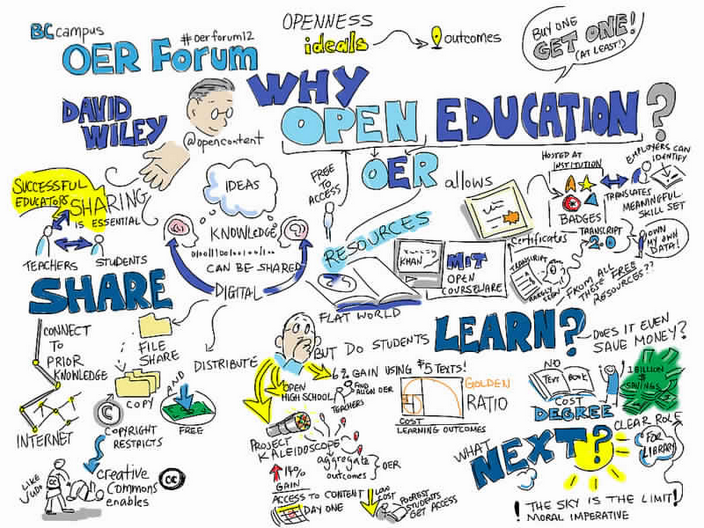 BCcampus
OER Forum
#oerforum12
OPENNESS
ideals
outcomes
BUY ONE
GET ONE!
(AT LEAST!)
DAVID
WILEY
@opencontent
WHY
OPEN EDUCATION?
SUCCESSFUL
EDUCATORS
SHARING
IS ESSENTIAL
TEACHERS
STUDENTS
SHARE
IDEAS
KNOWLEDGE
CAN BE SHARED
DIGITAL
FREE
TO
ACCESS
OER allows
RESOURCES
FLAT WORLD
KHAN
MIT
OPEN
COURSEWARE
Certificates
HOSTED AT
INSTITUTION
BADGES
TRANSLATES
EMPLOYERS CAN
IDENTIFY
MEANINGFUL
SKILL SET
TRANSCRIPT
2.0
OWN
MY OWN
DATA!
TRANSCRIPT
FROM ALL
THESE FREE
RESOURCES??
CONNECT
TO
PRIOR
KNOWLEDGE
INTERNET
FILE
SHARE
COPY
©
COPYRIGHT
RESTRICTS
DISTRIBUTE
AND
FREE
LIKE
JUDO
Creative
Commons
enables
cc
BUT DO STUDENTS
LEARN?
6% GAIN USING $5 TEXTS!
OPEN
HIGH SCHOOL
FIND
ALIGN OER
TEACHERS
PROJECT
KALEIDOSCOPE
aggregate
outcomes
OER
14%
GAIN
ACCESS TO CONTENT
DAY ONE
LOW
COST
POOREST
STUDENTS
GET ACCESS
GOLDEN
RATIO
COST
LEARNING OUTCOMES
DOES IT EVEN
SAVE MONEY?
NO
TEXT BOOK
COST
DEGREE
1 BILLION
$
SAVINGS
WHAT
NEXT?
CLEAR ROLE
FOR
LIBRARY
! THE SKY IS THE LIMIT!
MORAL IMPERATIVE